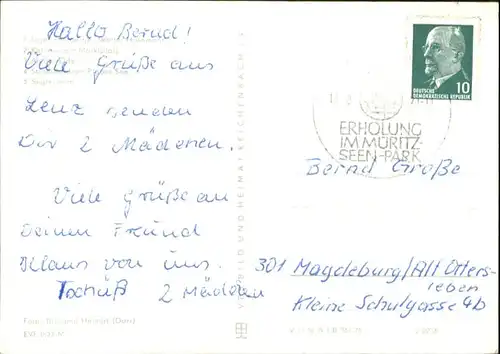 Hallo Bernd!
Viele Grüße aus
Lenz senden
Dir 2 Mädchen.
Viele Grüße an
Deinen Freund
Klaus von uns.
Tschüß 2 Mädchen
DEUTSCHE
DEMOKRATISCHE REPUBLIK 10
ERHOLUNG
IM MÜRITZ-
SEEN-PARK
Bernd Große
301 Magdeburg/Alt Otters-
leben
Kleine Schulgasse 4b